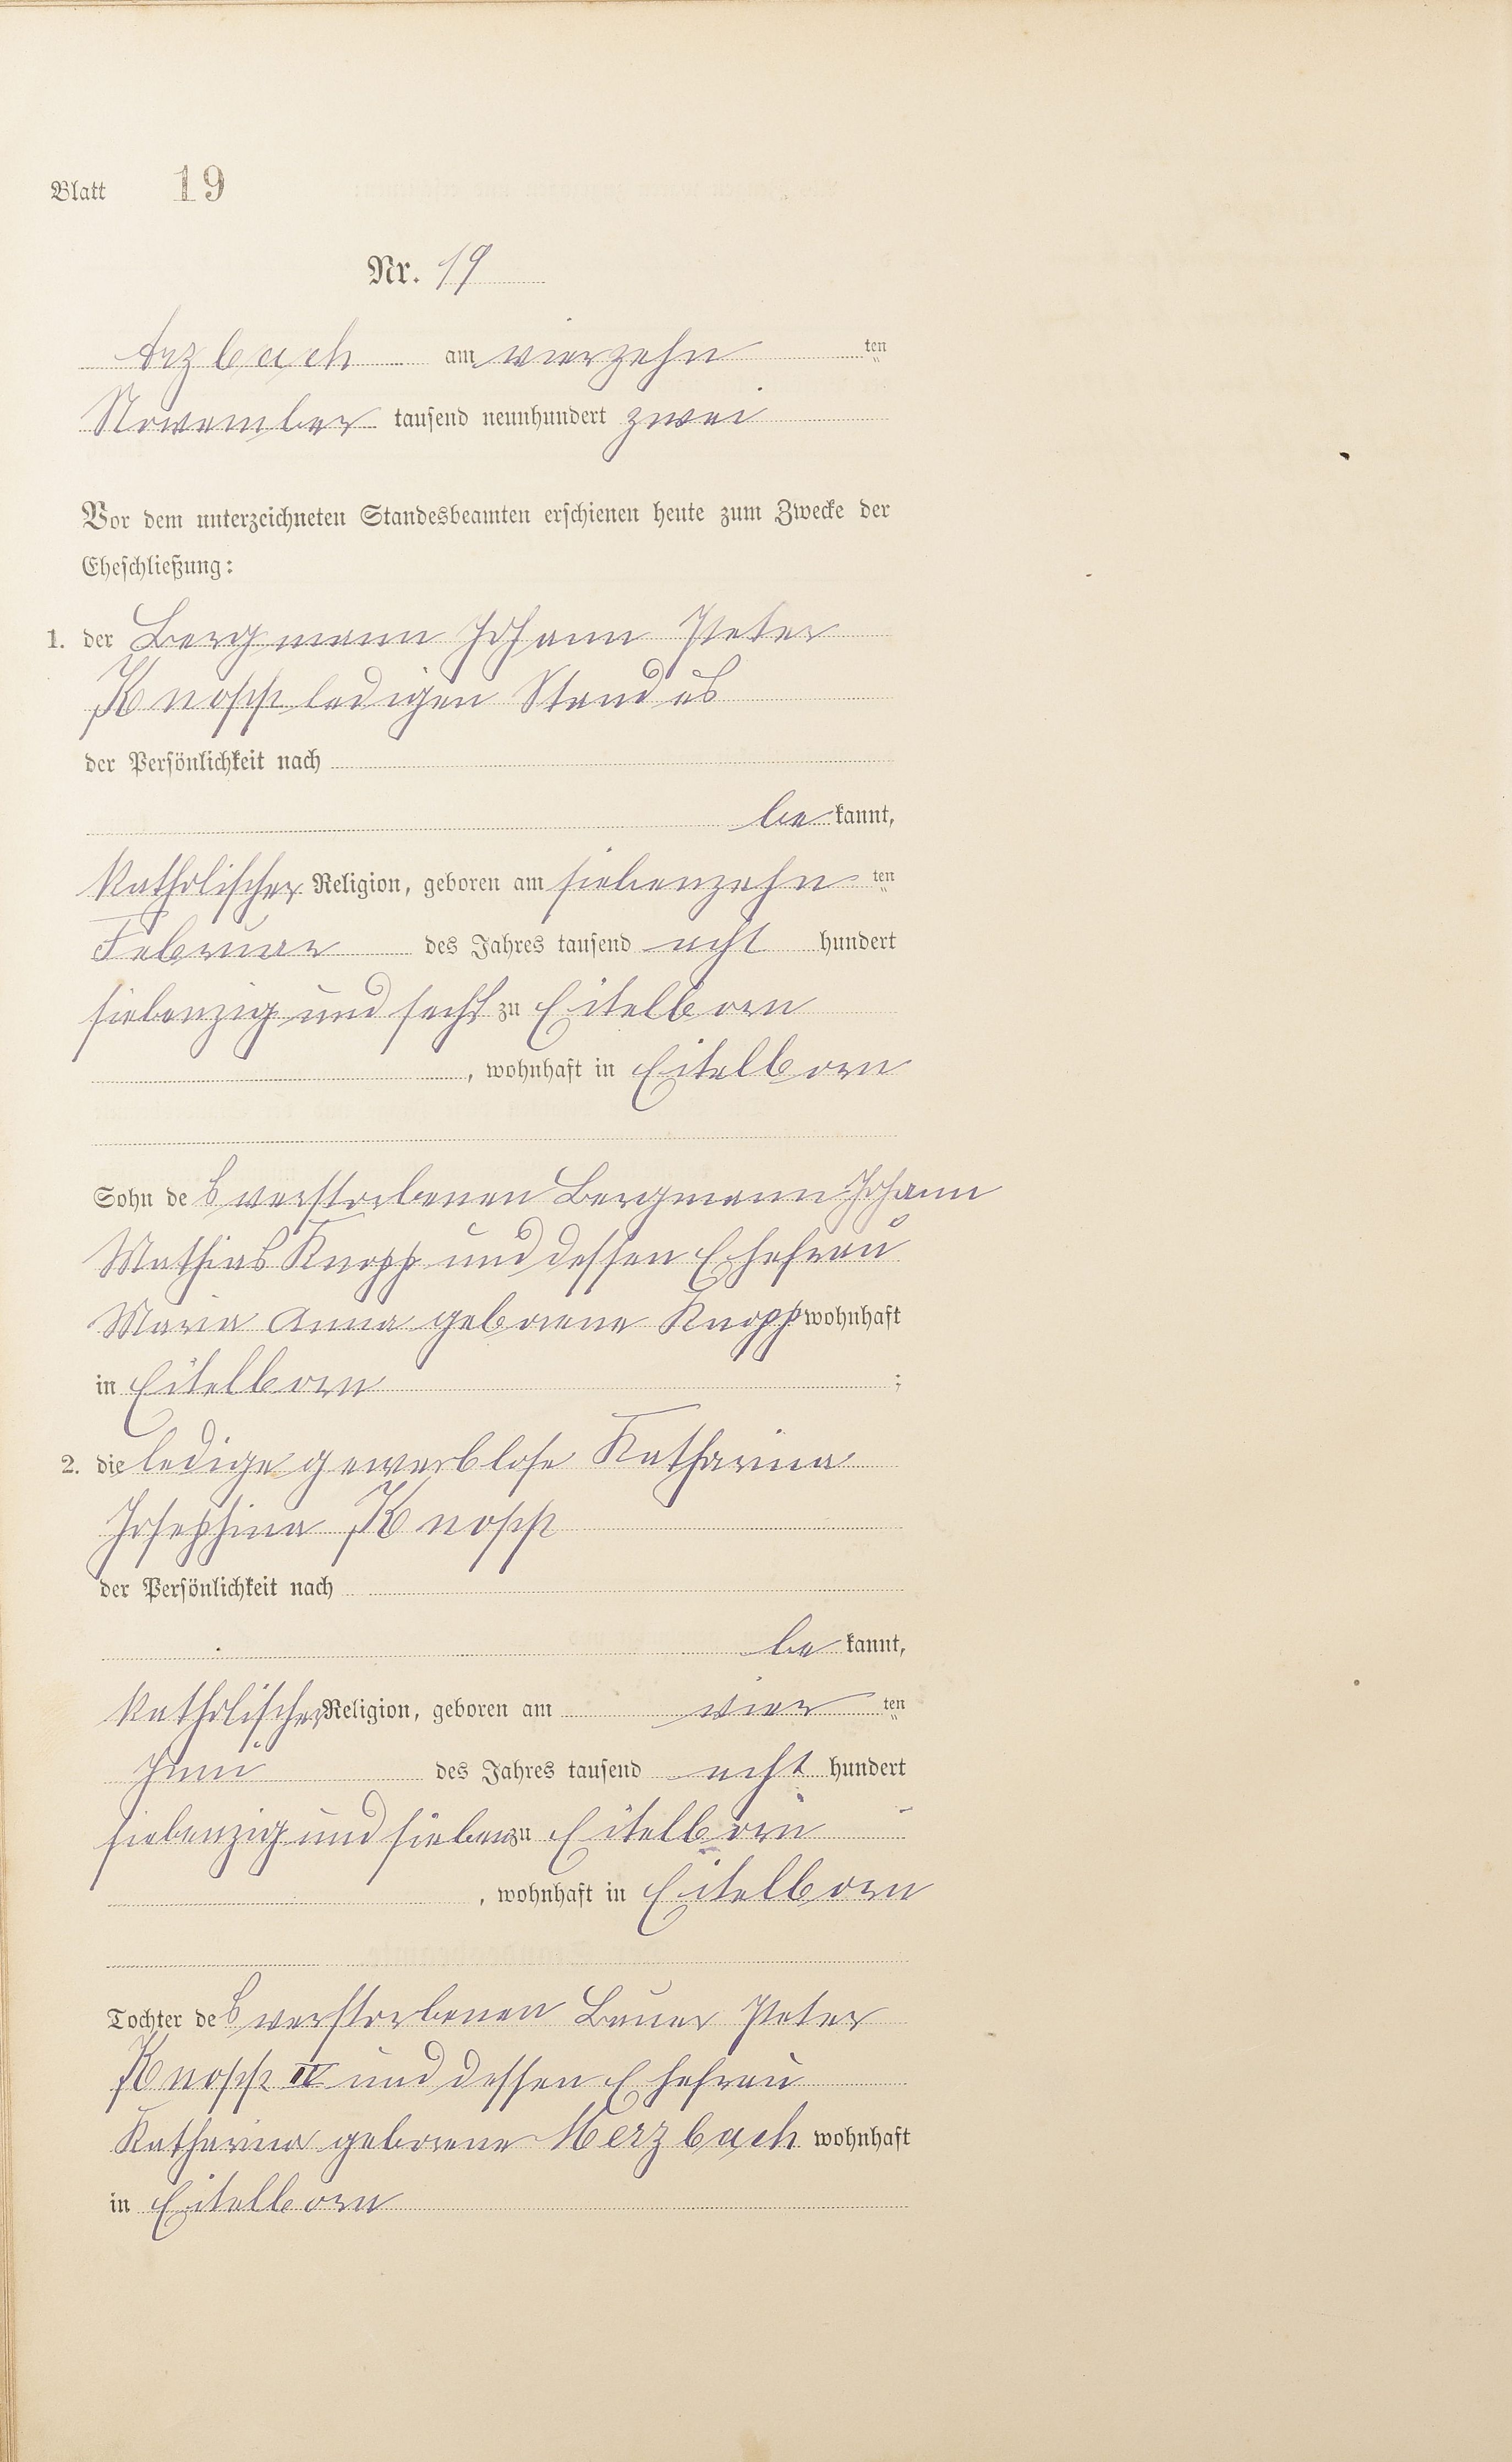 Blatt 19
Nr. 19
Arzbach am vierzehn ten
November tausend neunhundert zwei
Vor dem unterzeichneten Standesbeamten erschienen heute zum Zwecke der
Eheschließung:
1. der Bergmann Johann Peter
Knopp ledigen Standes
der Persönlichkeit nach
be kannt,
katholischer Religion, geboren am siebenzehn ten
Februar des Jahres tausend acht hundert
siebenzig und sechs zu Eitelborn
, wohnhaft in Eitelborn
Sohn de s verstorbenen Bergmann Johann
Mathias Knopp und dessen Ehefrau
Maria Anna geborene Knopp wohnhaft
in Eitelborn ;
2. die ledige gewerblose Katharina
Josephina Knopp
der Persönlichkeit nach
be kannt,
katholischer Religion, geboren am vier ten
Juni des Jahres tausend acht hundert
siebenzig und sieben zu Eitelborn
, wohnhaft in Eitelborn
Tochter de s verstorbenen Bauer Peter
Knopp IV und dessen Ehefrau
Katharina geborene Merzbach wohnhaft
in Eitelborn